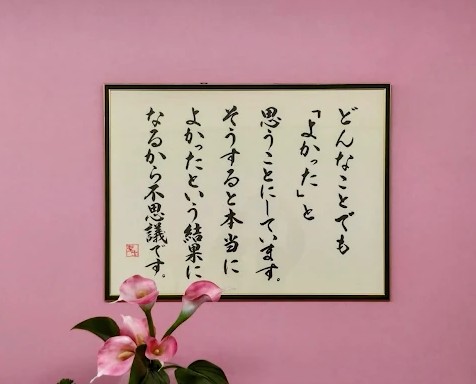 どんなことでも
「よかった」と
思うことにしています。
そうすると本当に
よかったという結果に
なるから不思議です。